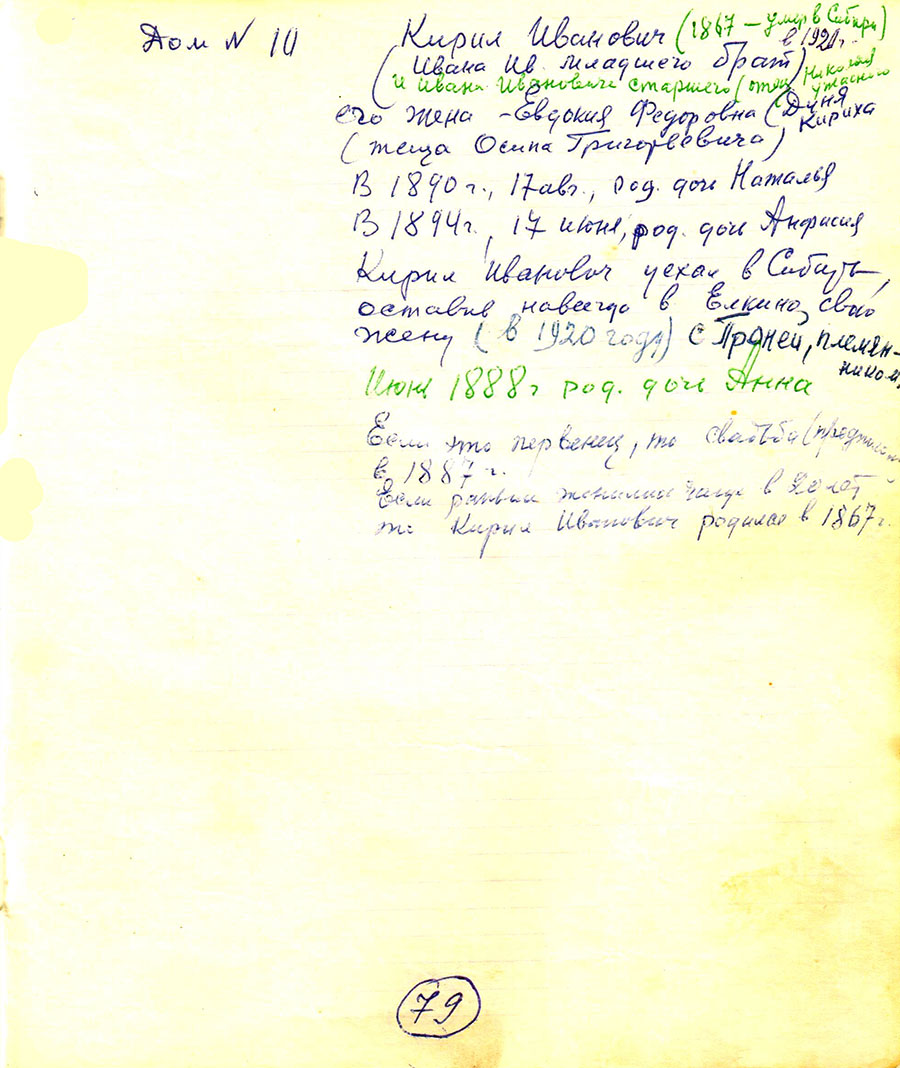 Дом N 10
Кирил Иванович (1867 – умер в Сибири)
в 1921г.
(Ивана Ив. младшего брат)
и Ивана Ивановича старшего (отец Николая
ужасного
его жена – Евдокия Федоровна (Дуня
Кириха
(теща Осипа Григорьевича)
В 1890г., 17 авг., род. дочь Наталья
В 1894г., 17 июня, род. дочь Анфисия
Кирил Иванович уехал в Сибирь,
оставив навсегда в Елкино, свою
жену (в 1920 году) с Проней, племян-
ником,
Июня 1888г род. дочь Анна
Если это первенец, то свадьба
в 1887 г.
Если раньше женились чаще в 20 лет
то Кирил Иванович родился в 1867г.
79